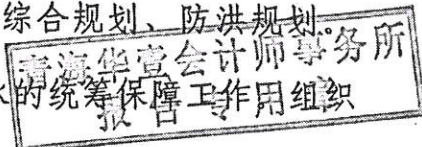 综合规划、防洪规划。
青海华壹会计师事务所
的统筹保障工作。组织
报告专用章